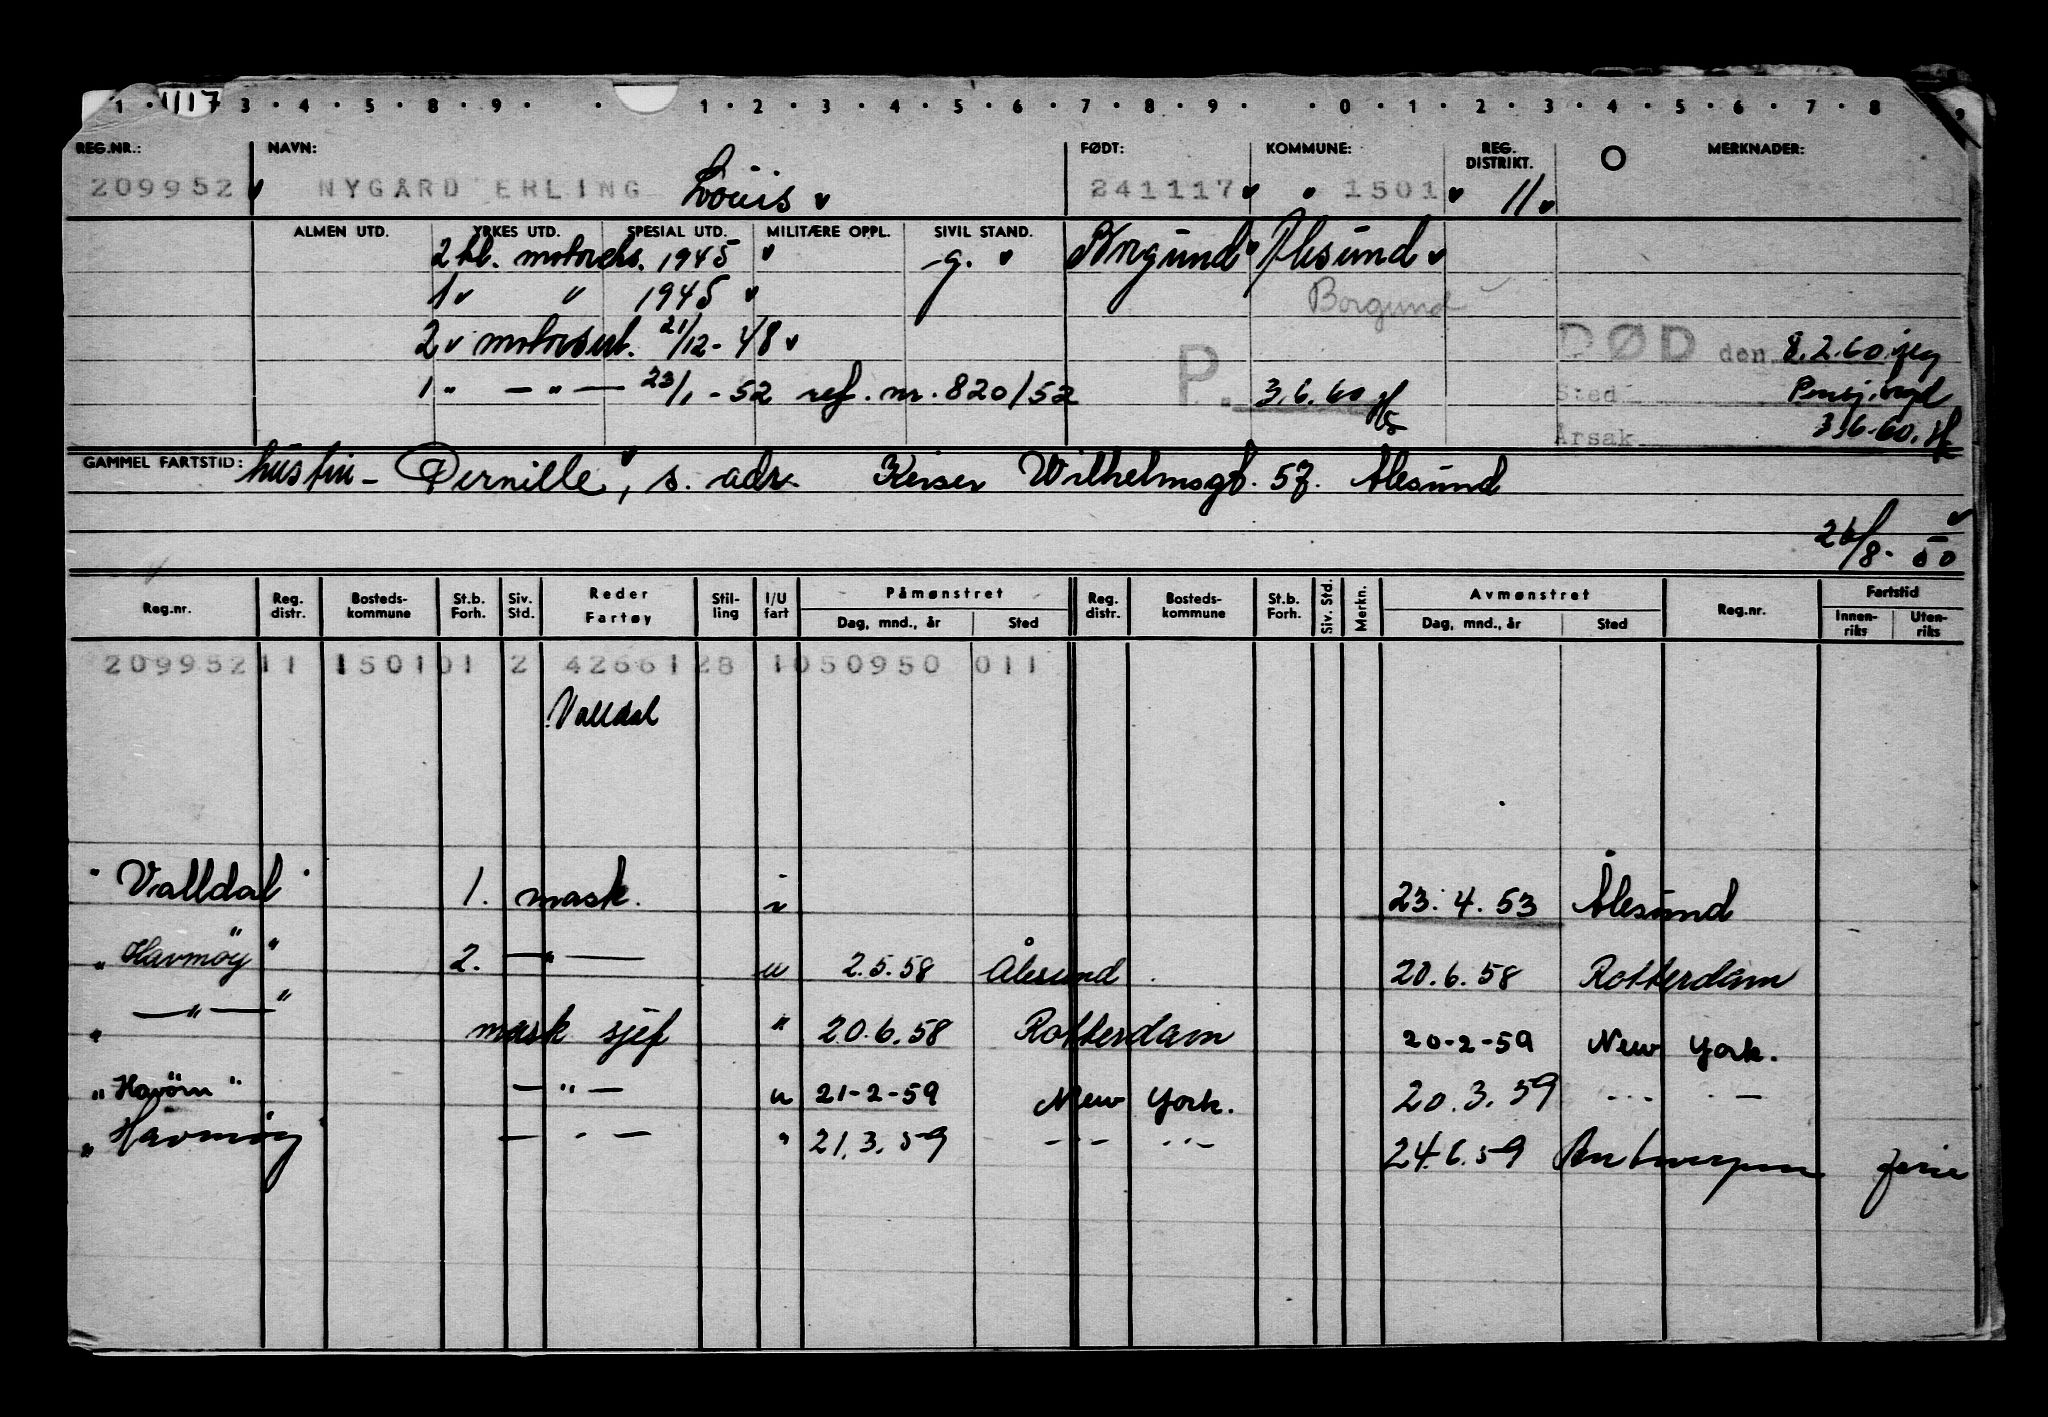 1 · 1117 3 · 4 · 5 · 8 · 9 · · 1 · 2 · 3 · 4 · 5 · 6 · 7 · 8 · 9 · · 0 · 1 · 2 · 3 · 4 · 5 · 6 · 7 · 8 · 9
REG.NR.: NAVN: FØDT: KOMMUNE: REG. DISTRIKT. O MERKNADER:
209952 NYGÅRD ERLING Louis 241117 1501 11
ALMEN UTD. YRKES UTD. SPESIAL UTD. MILITÆRE OPPL. SIVIL STAND.
2 kl. 1945 g. Borgund Ålesund
1 " 1945 Borgund
2 21/12-48 DØD den 8.2.60
1 " — " — 23/1-52 ref. nr. 820/52 P. 3.6.60 Sted
Årsak 3.6.60.
GAMMEL FARTSTID: hustru - Pernille, s. adr. Keiser Wilhelmsgt. 57. Ålesund
26/8-50
Reg.nr. Reg. distr. Bosteds-kommune St.b. Forh. Siv. Std. Reder Fartøy Stil-ling I/U fart Påmønstret Dag, mnd., år Sted Reg. distr. Bosteds-kommune St.b. Forh. Siv. Std. Merkn. Avmønstret Dag, mnd., år Sted Reg.nr. Fartstid Innen-riks Uten-riks
209952 11 1501 01 2 4266128 1050950 011
Valldal
"Valldal" 1. mask. i 23.4.53 Ålesund
"Havmøy" 2. — " — u 2.5.58 Ålesund 20.6.58 Rotterdam
" — " — " mask sjef " 20.6.58 Rotterdam 20-2-59 New York.
"Havørn" — " — u 21-2-59 New York. 20.3.59 — " —
"Havmøy — " — " 21.3.59 — " — 24.6.59 Antwerpen ferie